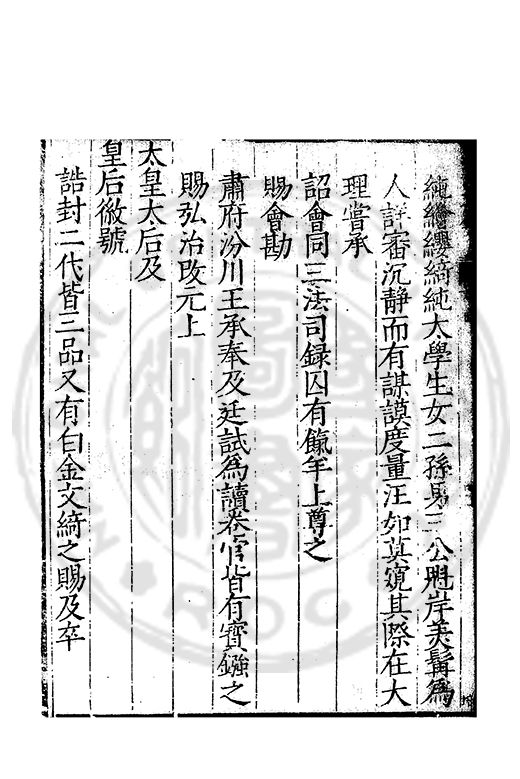 純繪纓綺純太學生女二孫男三公魁岸美髯為
人詳審沉靜而有謀謨度量汪如莫窺其際在大
理嘗承
詔會同三法司錄囚有餼羊上尊之
賜會勘
肅府汾川王承奉及廷試為讀卷官皆有寳鏹之
賜弘治改元上
太皇太后及
皇后徽號
誥封二代皆三品又有白金文綺之賜及卒